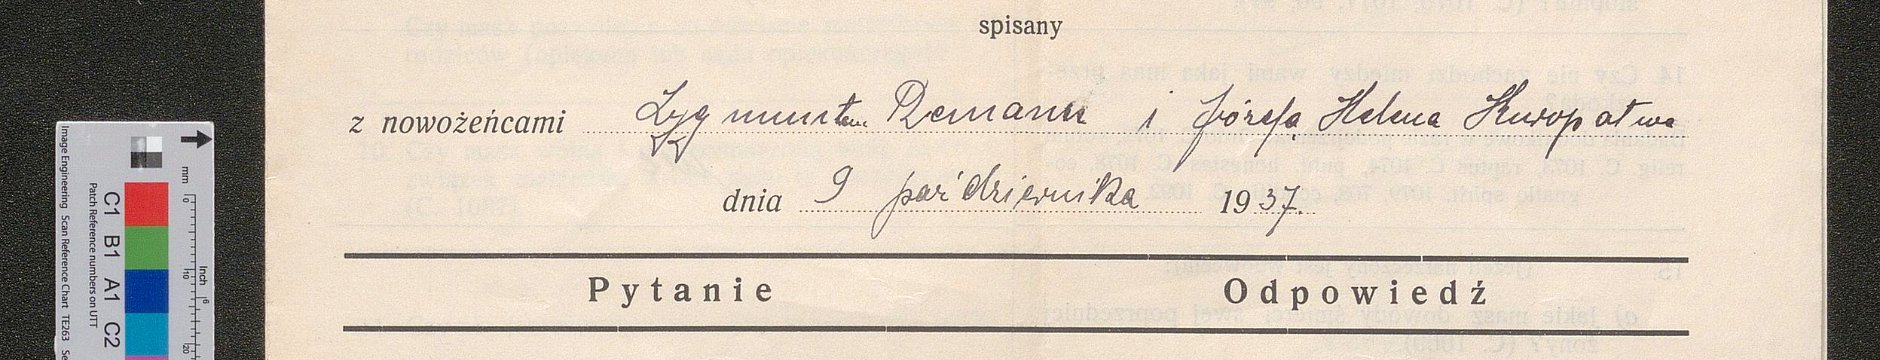 spisany
z nowożeńcami Zygmuntem Remanem i Józefą Helena Kuropatwa
dnia 9 październiķa 1937.
Pytanie Odpowiedź
Image Engineering Scan Reference Chart TE263
Patch Reference numbers on UTT
C1 B1 A1 C2
mm
inch